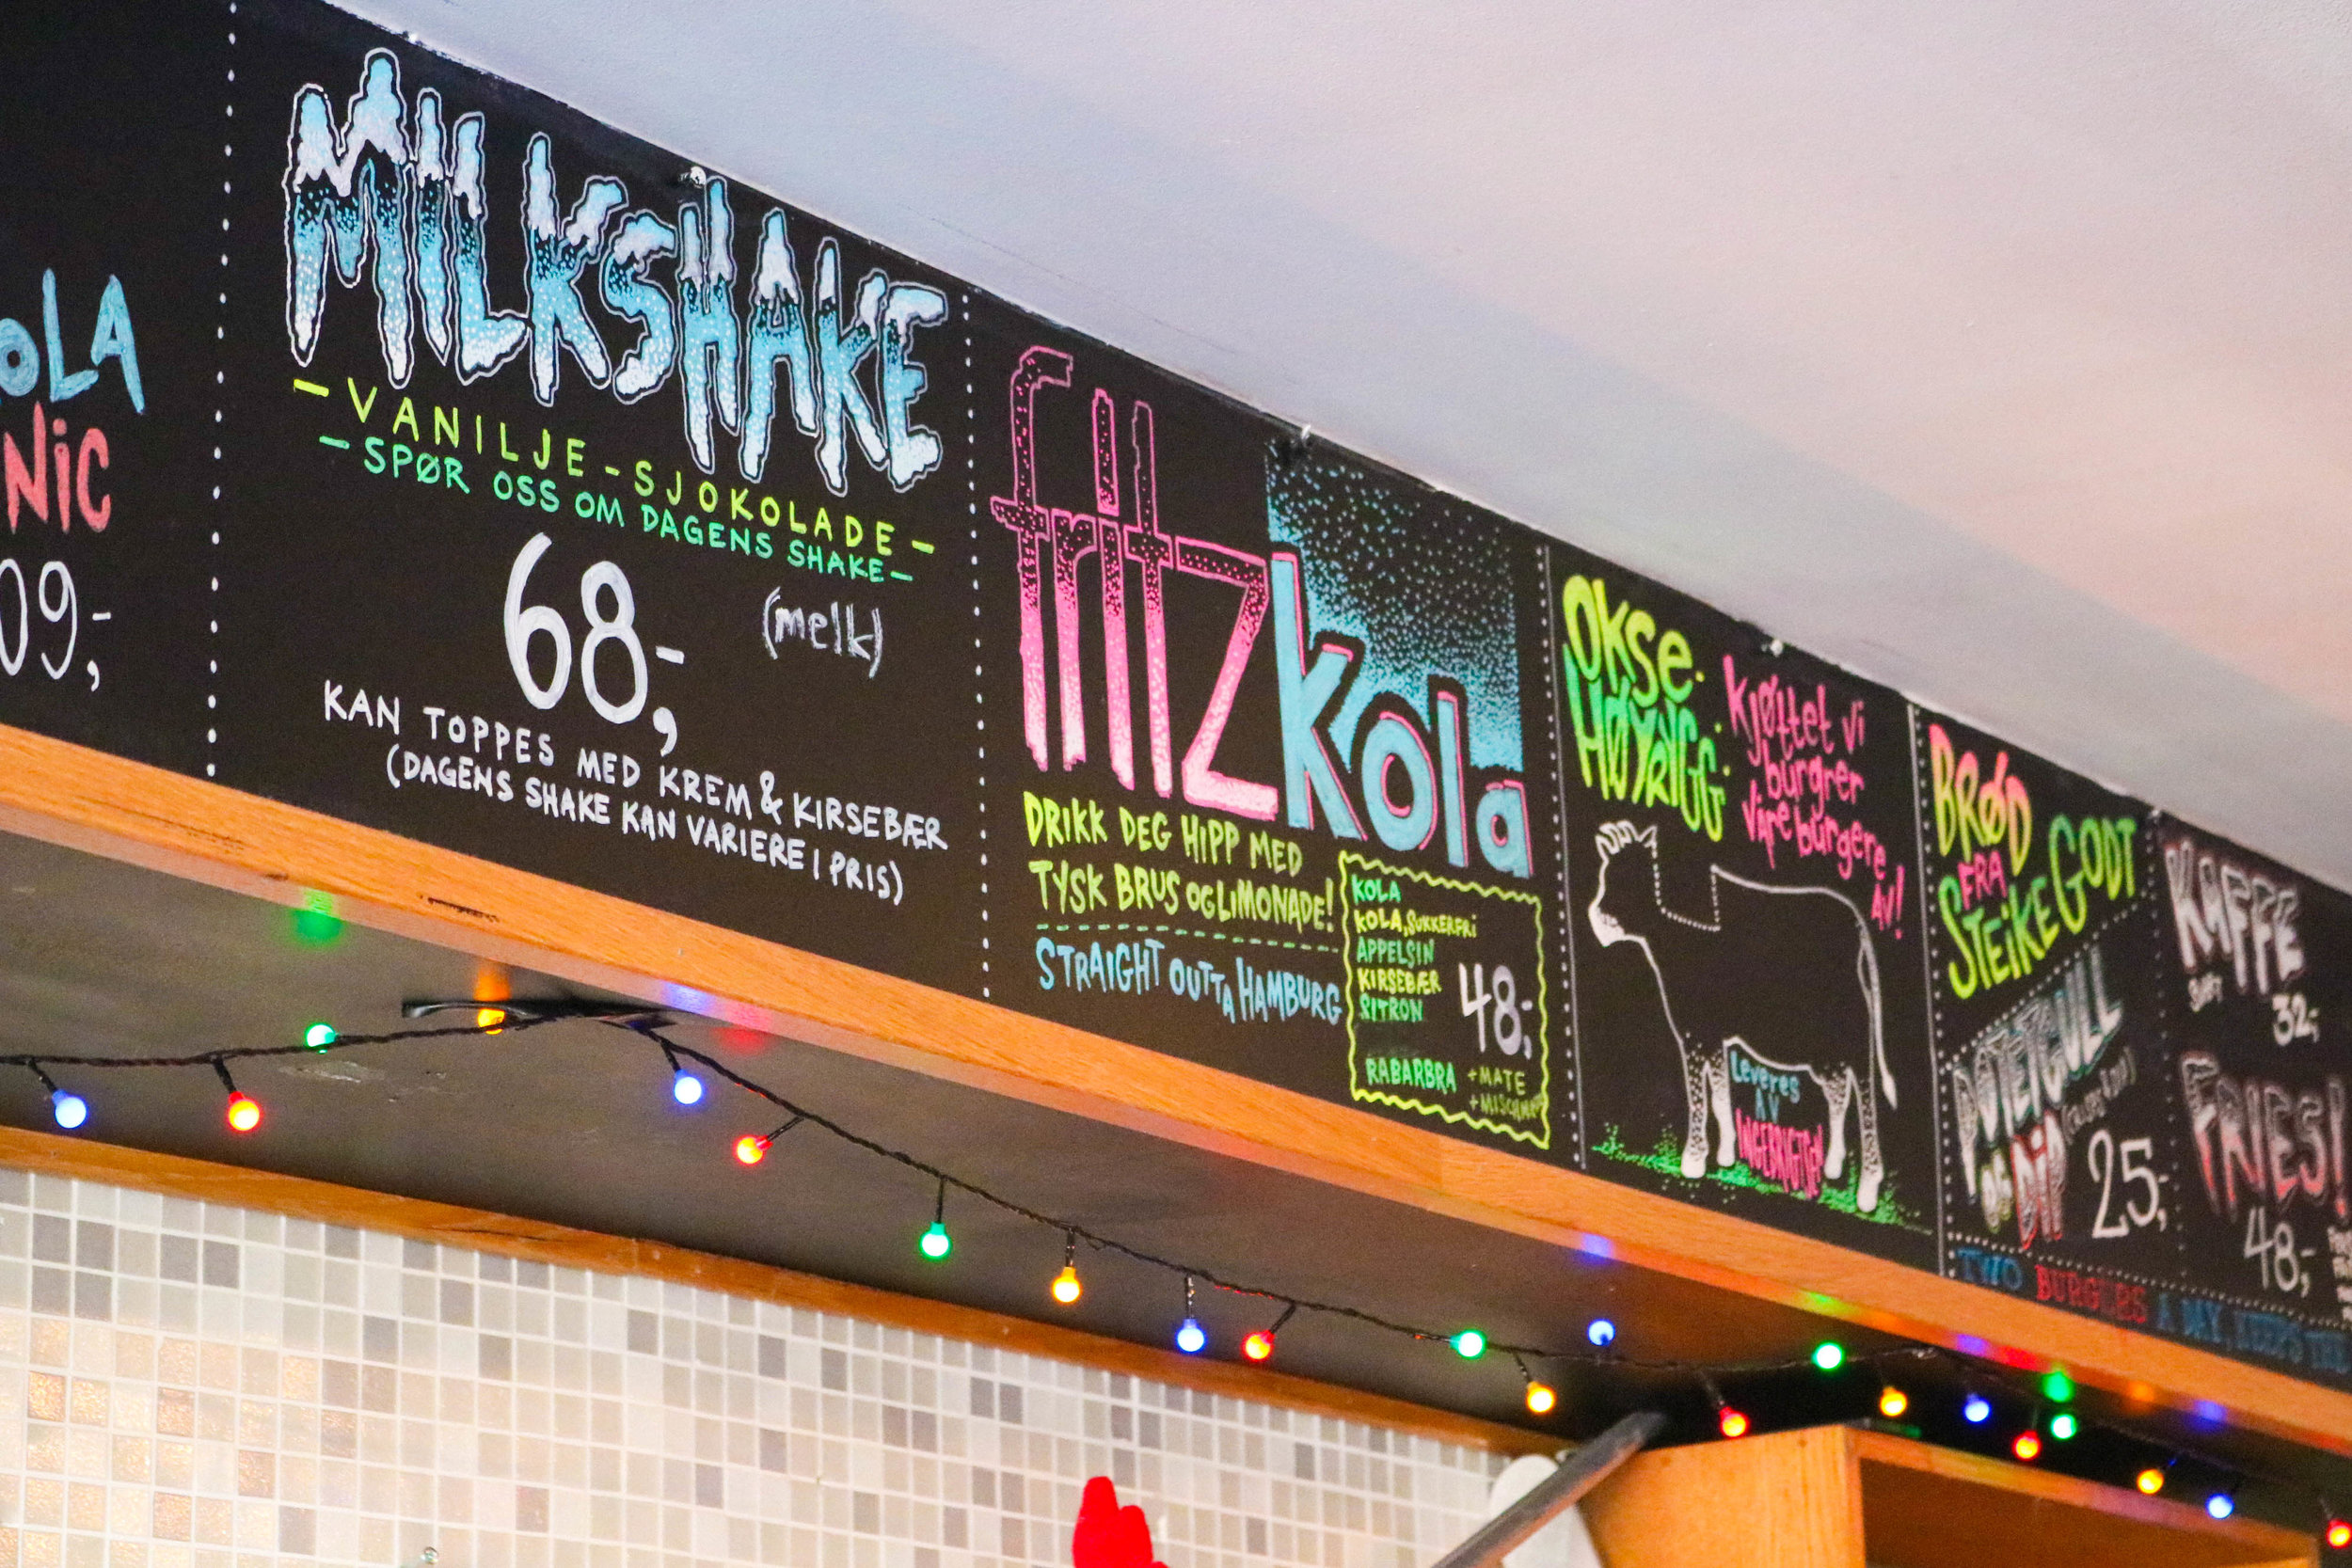 OLA
NIC
09,-
MILKSHAKE
- VANILJE - SJOKOLADE -
- SPØR OSS OM DAGENS SHAKE -
68,- (melk)
KAN TOPPES MED KREM & KIRSEBÆR
(DAGENS SHAKE KAN VARIERE I PRIS)
fritz
kola
DRIKK DEG HIPP MED
TYSK BRUS OG LIMONADE!
STRAIGHT OUTTA HAMBURG
KOLA
KOLA, SUKKERFRI
APPELSIN
KIRSEBÆR
SITRON
48,-
RABARBRA
+MATE
OKSE-
HØYRYGG
Kjøttet vi
burgrer
våre burgere
AV!
Leveres
AV
INGEBRIGTS!
BRØD
FRA
STEIKE GODT
POTETGULL
OG DIP
25,-
KAFFE
SVART
32,-
FRIES!
48,-
TWO BURGERS A DAY, KEEPS THE